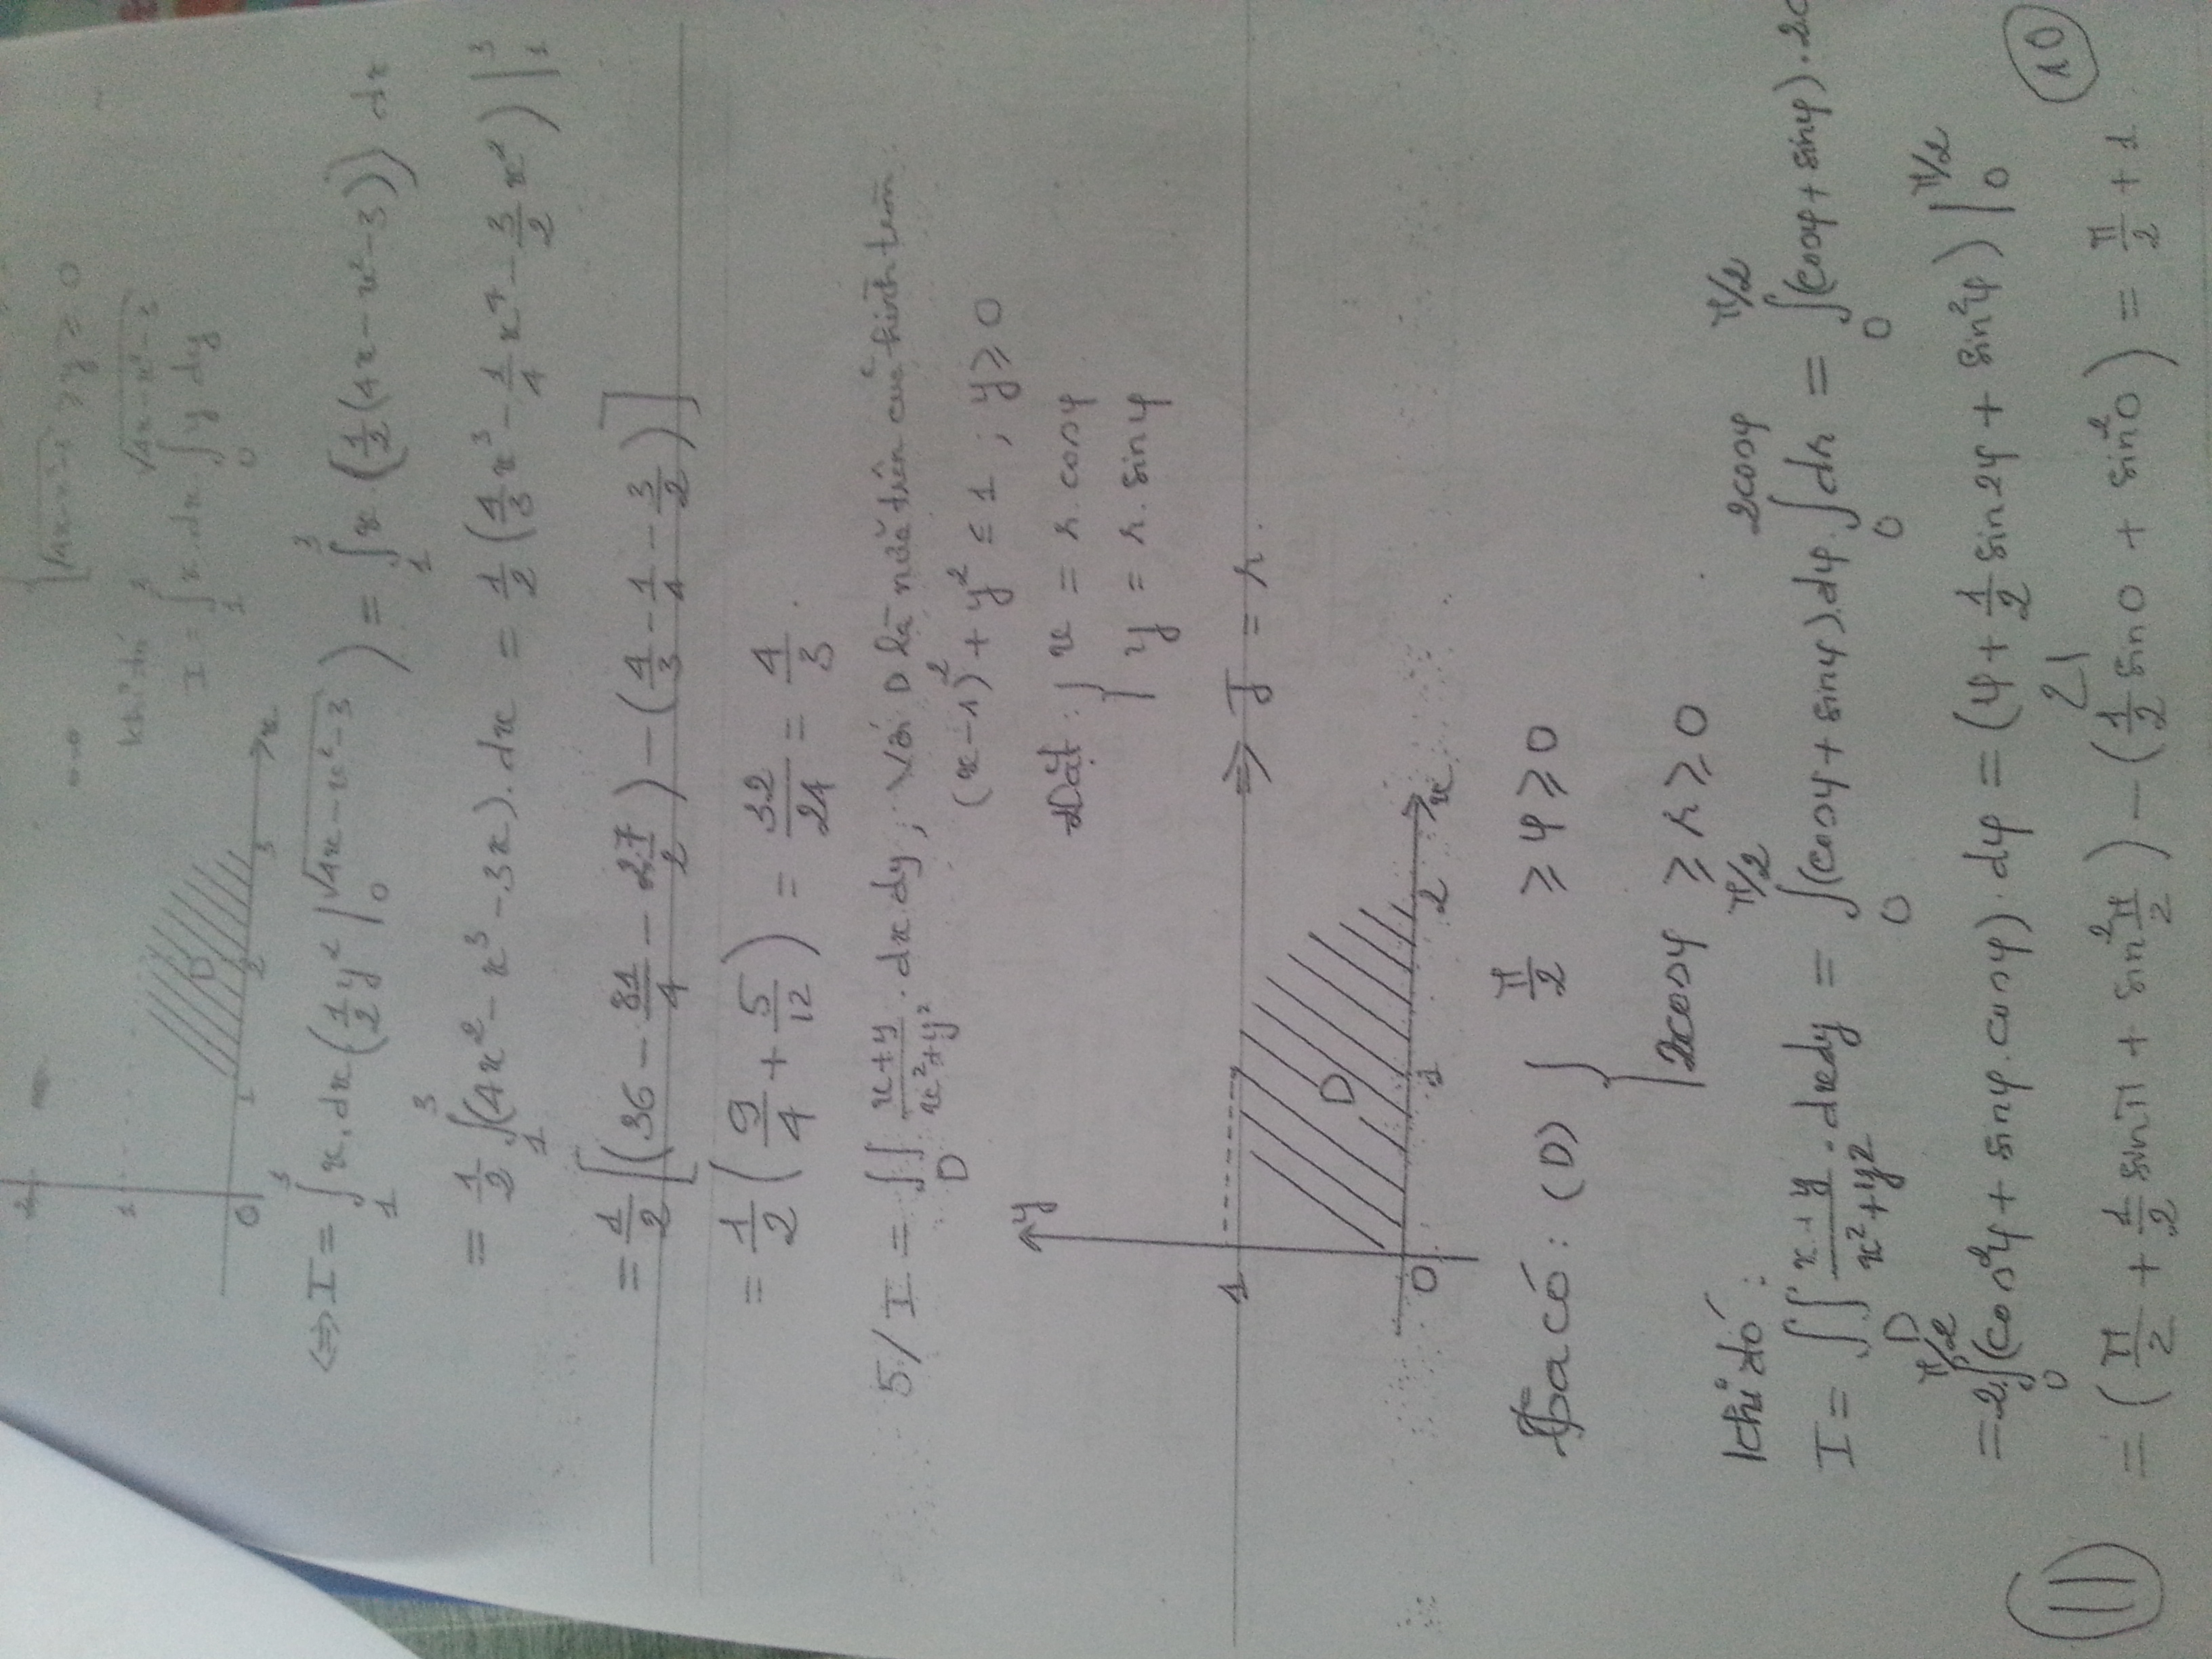 2
√4x-x²-3 ≥ y ≥ 0
1
Khi đó
I = ∫₁³ x.dx.∫₀^√(4x-x²-3) y dy
D
0 1 2 3 x
⇔ I = ∫₁³ x.dx (1/2 y² |₀^√(4x-x²-3)) = ∫₁³ x.(1/2(4x-x²-3)) dx
= 1/2 ∫₁³ (4x²-x³-3x).dx = 1/2 (4/3 x³ - 1/4 x⁴ - 3/2 x²) |₁³
= 1/2 [(36 - 81/4 - 27/2) - (4/3 - 1/4 - 3/2)]
= 1/2 (9/4 + 5/12) = 32/24 = 4/3.
5/ I = ∬_D (x+y)/(x²+y²).dxdy; với D là nửa trên của hình tròn
(x-1)² + y² ≤ 1 ; y ≥ 0
y
Đặt: { x = r.cosφ
y = r.sinφ
1
⇒ J = r.
D
0 1 2 x
Ta có: (D) { π/2 ≥ φ ≥ 0
2cosφ ≥ r ≥ 0
Khi đó:
I = ∬_D (x+y)/(x²+y²).dxdy = ∫₀^π/2 (cosφ+sinφ).dφ.∫₀^2cosφ dr = ∫₀^π/2 (cosφ+sinφ).2c
= 2.∫₀^π/2 (cos²φ + sinφ.cosφ).dφ = (φ + 1/2 sin2φ + sin²φ) |₀^π/2
21
11
10
= (π/2 + 1/2 sinπ + sin² π/2) - (1/2 sin0 + sin²0) = π/2 + 1